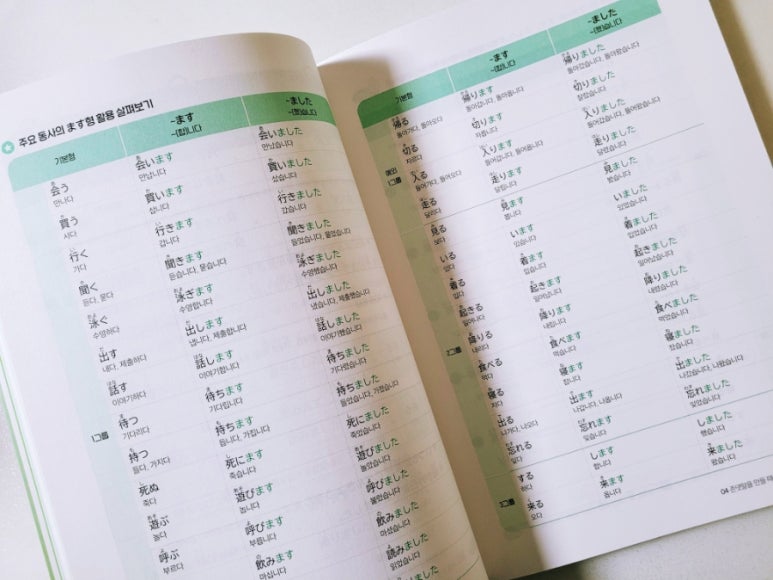 주요 동사의 ます형 활용 살펴보기
기본형 -ます -ました
-(합)니다 -(했)습니다
会う 会います 会いました
만나다 만납니다 만났습니다
買う 買います 買いました
사다 삽니다 샀습니다
行く 行きます 行きました
가다 갑니다 갔습니다
聞く 聞きます 聞きました
듣다, 묻다 듣습니다, 묻습니다 들었습니다, 물었습니다
泳ぐ 泳ぎます 泳ぎました
수영하다 수영합니다 수영했습니다
出す 出します 出しました
내다, 제출하다 냅니다, 제출합니다 냈습니다, 제출했습니다
話す 話します 話しました
이야기하다 이야기합니다 이야기했습니다
1그룹
待つ 待ちます 待ちました
기다리다 기다립니다 기다렸습니다
持つ 持ちます 持ちました
들다, 가지다 듭니다, 가집니다 들었습니다, 가졌습니다
死ぬ 死にます 死にました
죽다 죽습니다 죽었습니다
遊ぶ 遊びます 遊びました
놀다 놉니다 놀았습니다
呼ぶ 呼びます 呼びました
부르다 부릅니다 불렀습니다
飲みます 飲みました
마십니다 마셨습니다
読みました
읽었습니다
ました
기본형 -ます -ました
-(합)니다 -(했)습니다
帰る 帰ります 帰りました
돌아가다, 돌아오다 돌아갑니다, 돌아옵니다 돌아갔습니다, 돌아왔습니다
切る 切ります 切りました
자르다 자릅니다 잘랐습니다
예외
1그룹
入る 入ります 入りました
들어가다, 들어오다 들어갑니다, 들어옵니다 들어갔습니다, 들어왔습니다
走る 走ります 走りました
달리다 달립니다 달렸습니다
見る 見ます 見ました
보다 봅니다 봤습니다
いる います いました
있다 있습니다 있었습니다
着る 着ます 着ました
입다 입습니다 입었습니다
起きる 起きます 起きました
일어나다 일어납니다 일어났습니다
2그룹
降りる 降ります 降りました
내리다 내립니다 내렸습니다
食べる 食べます 食べました
먹다 먹습니다 먹었습니다
寝る 寝ます 寝ました
자다 잡니다 잤습니다
出る 出ます 出ました
나가다, 나오다 나갑니다, 나옵니다 나갔습니다, 나왔습니다
忘れる 忘れます 忘れました
잊다 잊습니다 잊었습니다
3그룹
する します しました
하다 합니다 했습니다
来る 来ます 来ました
오다 옵니다 왔습니다
04 존댓말을 만들 때